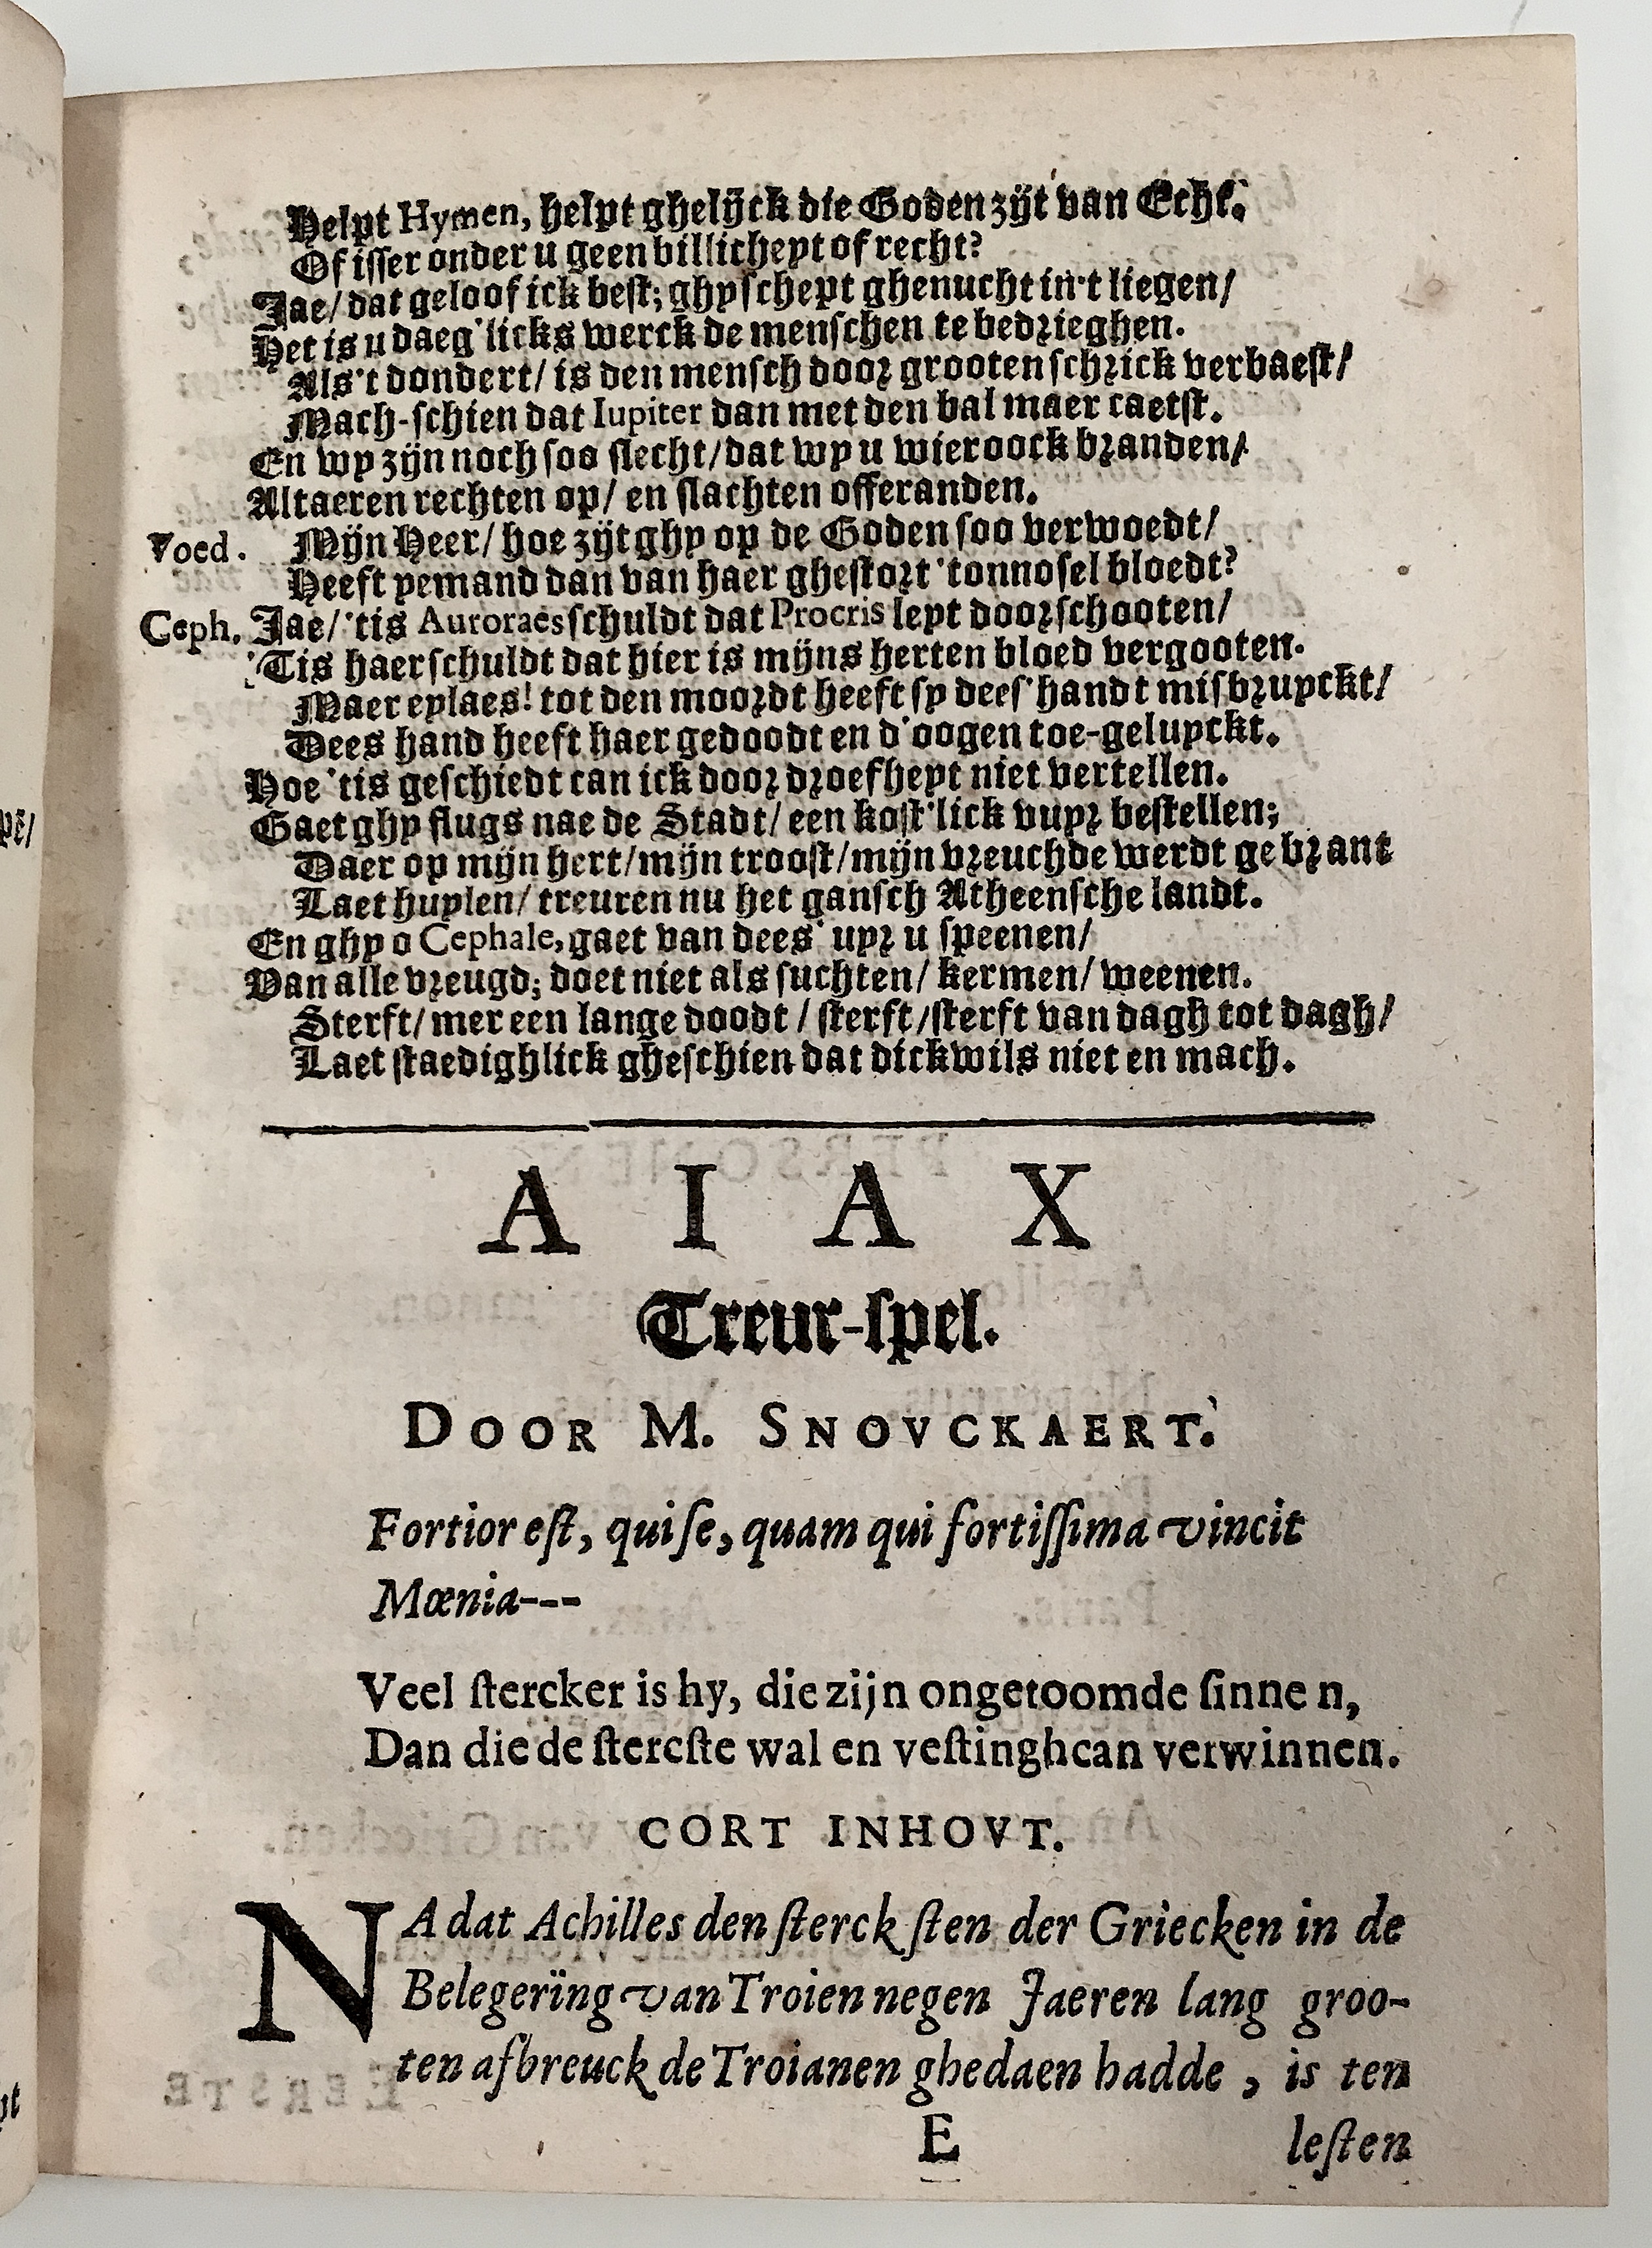 Helpt Hymen, helpt ghelijck die Goden zijt van Echt.
Of isser onder u geen billicheyt of recht?
Jae/ dat geloof ick best; ghy schept ghenucht in't liegen/
Het is u daeg'licks werck de menschen te bedrieghen.
Als't dondert/ is den mensch door grooten schrick verbaest/
Mach-schien dat Iupiter dan met den bal maer caetst.
En wy zijn noch soo slecht/ dat wy u wieroock branden/
Altaeren rechten op/ en slachten offeranden.
Voed. Mijn Heer/ hoe zijt ghy op de Goden soo verwoedt/
Heeft yemand dan van haer ghestort 'tonnosel bloedt?
Ceph. Jae/ 'tis Auroraes schuldt dat Procris leyt doorschooten/
'Tis haer schuldt dat hier is mijns herten bloed vergooten.
Maer eylaes! tot den moordt heeft sy dees' handt misbruyckt/
Dees hand heeft haer gedoodt en d'oogen toe-geluyckt.
Hoe 'tis geschiedt can ick door droefheyt niet vertellen.
Gaet ghy flugs nae de Stadt/ een kost'lick vuyr bestellen;
Daer op mijn hert/ mijn troost/ mijn vreuchde werdt gebrant
Laet huylen/ treuren nu het gansch Atheensche landt.
En ghy o Cephale, gaet van dees' uyr u speenen/
Van alle vreugd; doet niet als suchten/ kermen/ weenen.
Sterft/ mer een lange doodt/ sterft/ sterft van dagh tot dagh/
Laet staedighlick gheschien dat dickwils niet en mach.
A I A X
Treur-spel.
DOOR M. SNOVCKAERT.
Fortior est, qui se, quam qui fortissima vincit
Mœnia---
Veel stercker is hy, die zijn ongetoomde sinnen,
Dan die de stercste wal en vestingh can verwinnen.
CORT INHOVT.
NA dat Achilles den stercksten der Griecken in de
Belegerïng van Troien negen Jaeren lang groo-
ten afbreuck de Troianen ghedaen hadde, is ten
E lesten